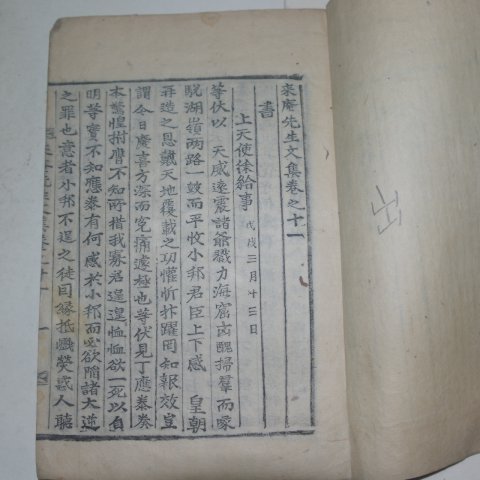 來庵先生文集卷之十一
書
上天使徐給事 戊戌三月十三日
等伏以 天威遠震諸爺戮力海窟凶醜掃羣而豕
駾湖嶺兩路一鼓而平收小邦君臣上下感 皇朝
再造之恩戴天地覆載之功懽忻抃躍罔知報效豈
謂今日慶喜方深而冤痛遽極也等伏見丁應泰奏
本驚惶拊膺不知所措我寡君遑遑恤恤欲一死以自
明等實不知應泰有何感於小邦而必欲陷諸大逆
之罪也意者小邦不逞之徒因緣抵巇熒惑人聽